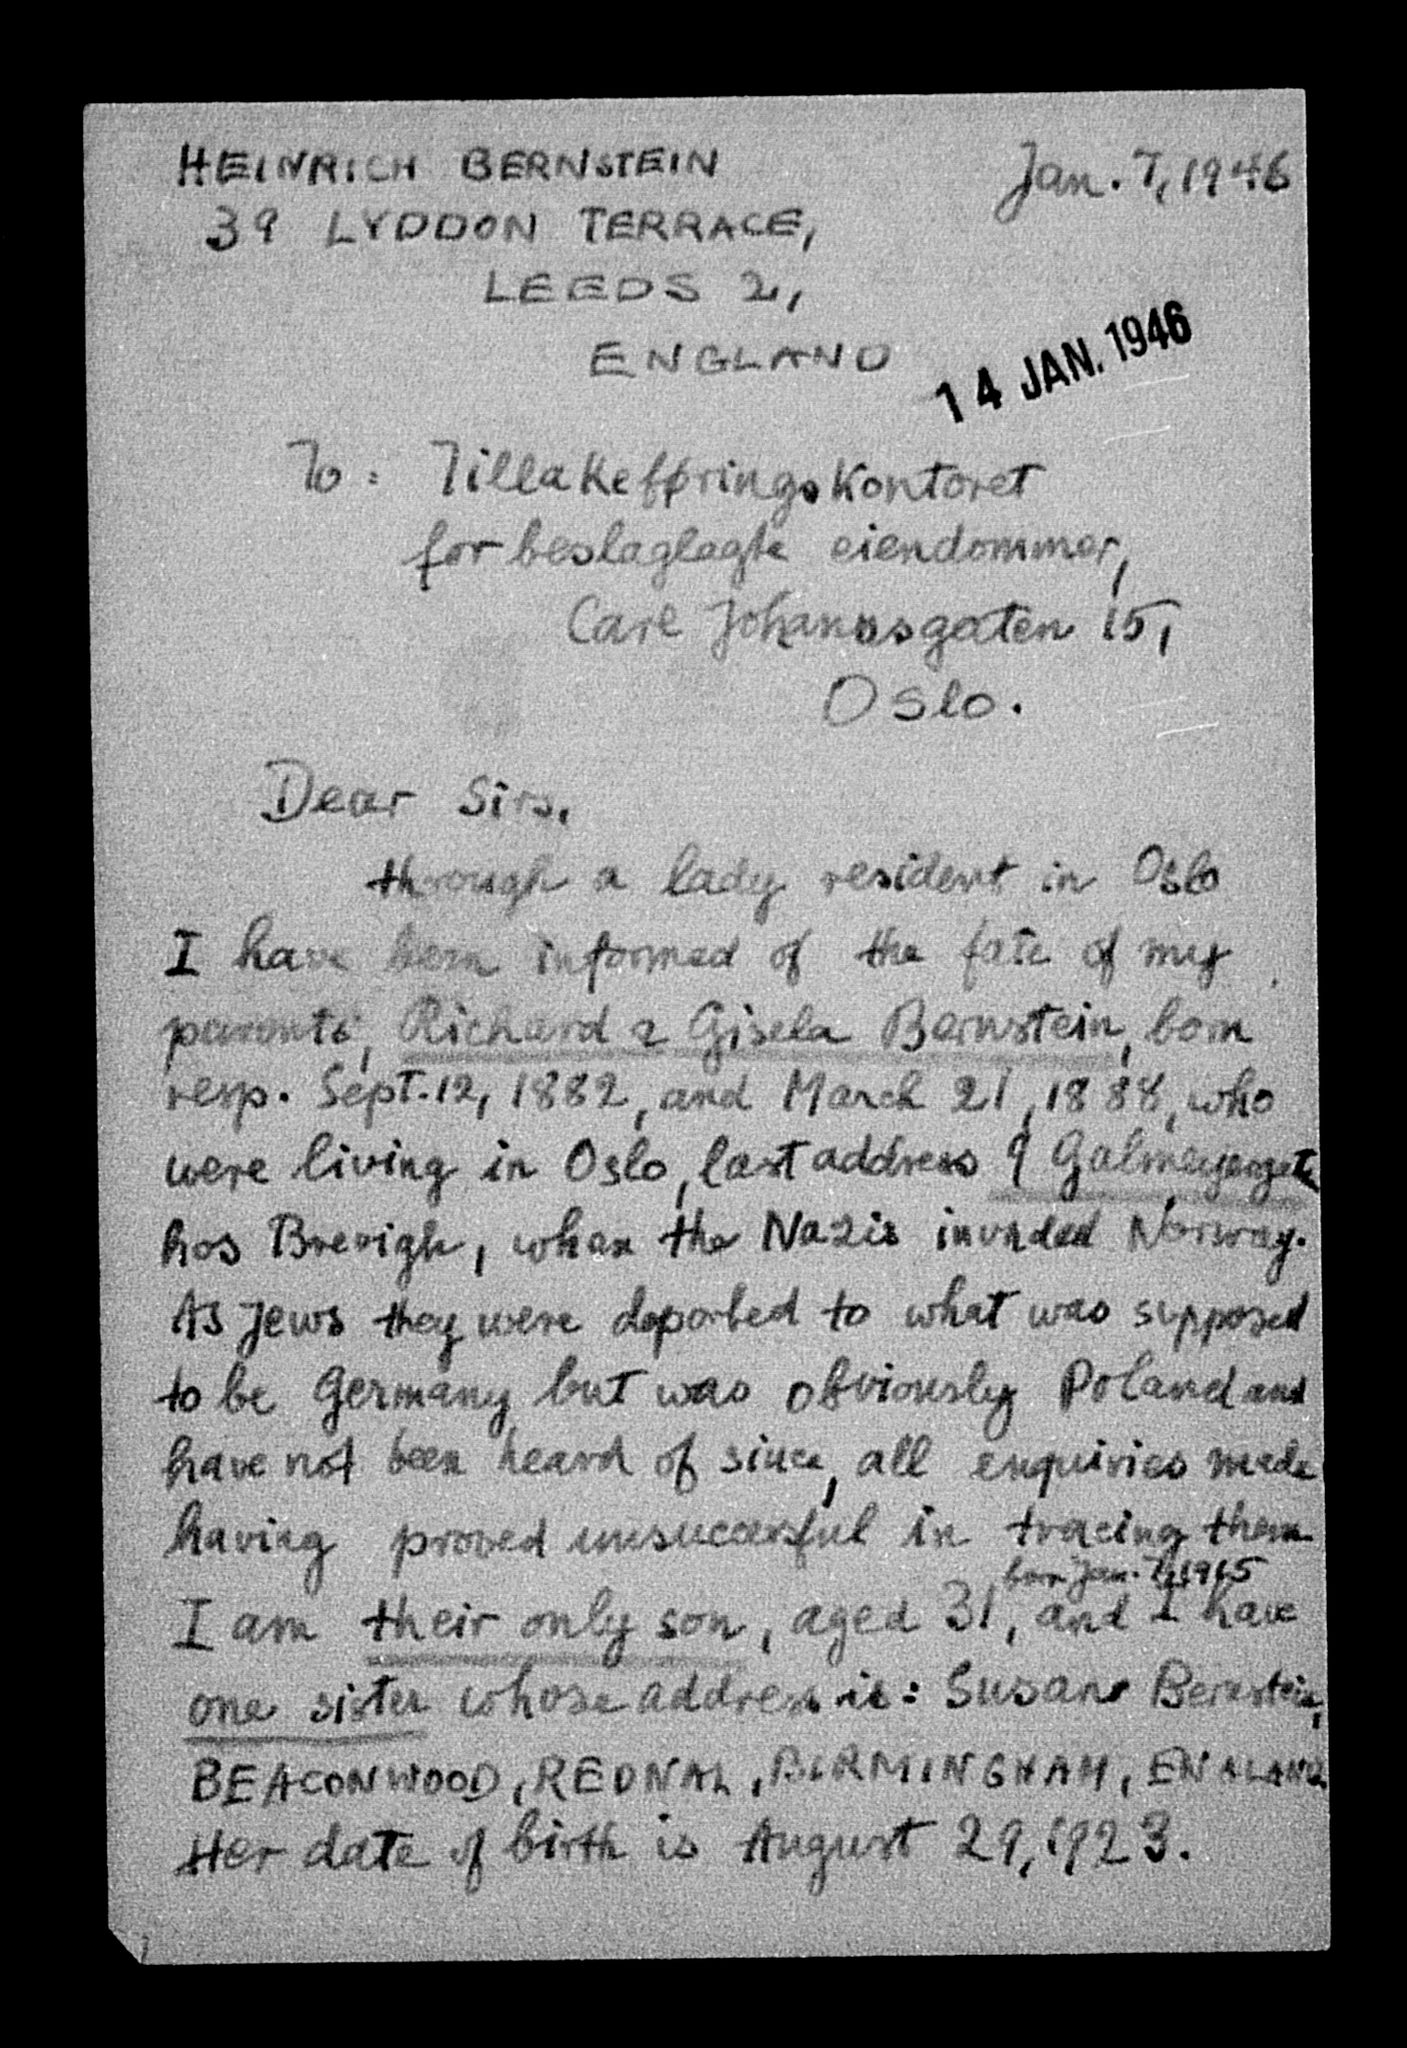 HEINRICH BERNSTEIN
Jan. 7, 1946
39 LYDDON TERRACE,
LEEDS 2,
ENGLAND
14 JAN. 1946
To: Tillakeføringskontoret
for beslaglagte eiendommer,
Carl Johannsgaten 15,
Oslo.
Dear Sirs,
through a lady resident in Oslo
I have been informed of the fate of my
parents, Richard & Gisela Bernstein, born
resp. Sept. 12, 1882, and March 21, 1888, who
were living in Oslo, last address 9 Galmeyergt
hos Brevigh, when the Nazis invaded Norway.
As Jews they were deported to what was supposed
to be Germany but was obviously Poland and
have not been heard of since, all enquiries made
having proved unsuccessful in tracing them
born Jan. 7, 1915
I am their only son, aged 31, and I have
one sister whose address is: Susan Bernstein,
BEACONWOOD, REDNAL, BIRMINGHAM, ENGLAND
Her date of birth is August 29, 1923.